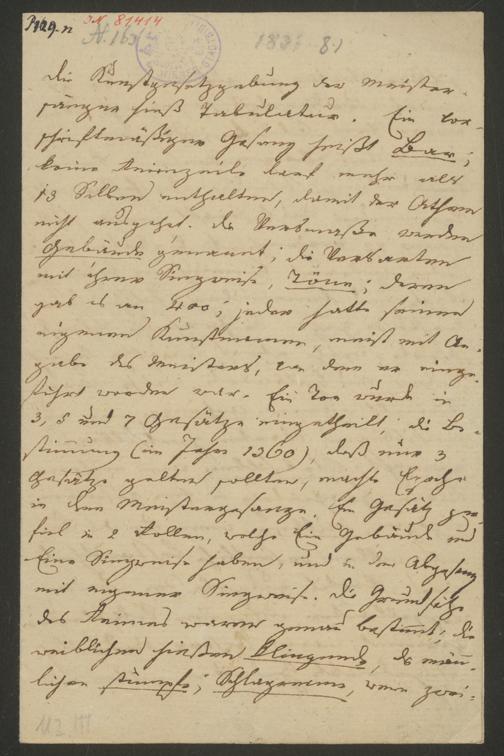 J.N. 81414
183 8.1
Die Kunstgesetzgebung der Meister-
sänger hieß Tabulatur. Ein vor-
schriftmäßiger Gesang heißt Bar;
keine Reimzeile darf mehr als
13 Silben enthalten, damit der Athem
nicht ausgehet. die Versmaße werden
Gebäude genannt; die Versarten
mit ihrer Singweise, Töne; deren
gab es an 400; jeder hatte seinen
eigenen Kunstnamen, meist mit An-
gabe des Meisters, von dem er einge-
führt worden war. Ein Ton wurde in
3, 5 und 7 Gesätze eingetheilt; die Be-
stimmung (im Jahre 1360), daß nur 3
Gesätze gelten sollten, machte Epoche
in dem Meistergesange. Ein Gesätz zer-
fiel in 2 Stollen, welche Ein Gebäude und
Eine Singweise haben, und in den Abgesang
mit eigener Singweise. Die Grundsätze
des Reimes waren genau bestimmt; die
weiblichen hießen klingende, die männ-
lichen stumpfe; Schlagreime, wenn zwei-